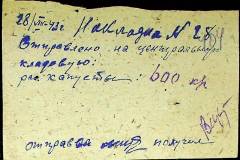 28/VII-43г Накладка N 28
Отправлено на центральную
кладовую:
капусты: 600 кр
отправил получил